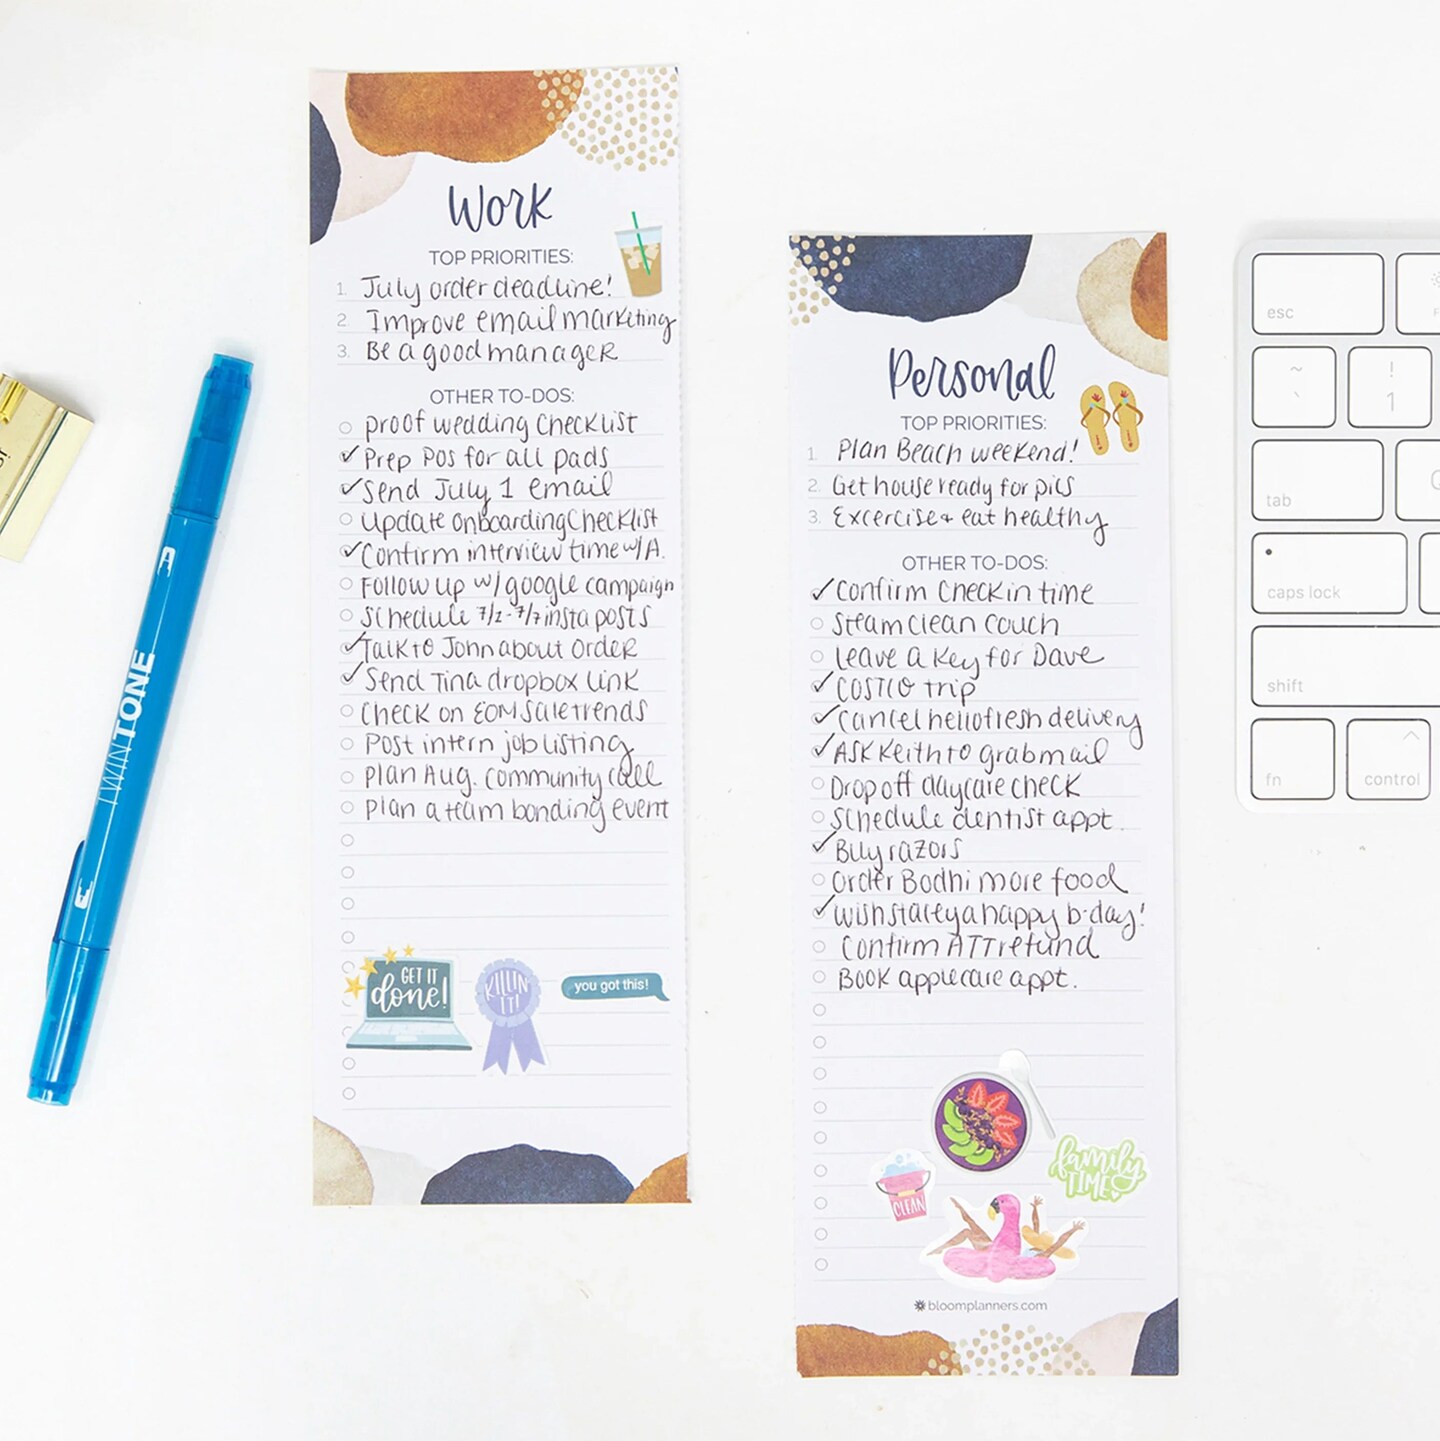 Work
TOP PRIORITIES:
1. July order deadline!
2. Improve email marketing
3. Be a good manager
OTHER TO-DOS:
proof wedding checklist
Prep POs for all pads
Send July 1 email
Update onboarding checklist
Confirm interview time w/A.
Follow up w/google campaign
Schedule 7/1-7/7 insta posts
Talk to John about order
Send Tina dropbox link
Check on EOM sale trends
Post intern job listing
Plan Aug. community call
Plan a team bonding event
GET IT
done!
KILLIN'
IT!
you got this!
Personal
TOP PRIORITIES:
1. Plan Beach weekend!
2. Get house ready for pics
3. Excercise + eat healthy
OTHER TO-DOS:
Confirm Check in time
Steam clean couch
leave a key for Dave
COSTCO trip
Cancel hellofresh delivery
ASK Keith to grab mail
Drop off daycare check
Schedule dentist appt.
Buy razors
Order Bodhi more food
Wish Stacey a happy b-day!
Confirm ATT refund
Book applecare appt.
family
TIME
CLEAN
bloomplanners.com
TWINTONE
esc
~
`
!
1
tab
caps lock
shift
fn
control